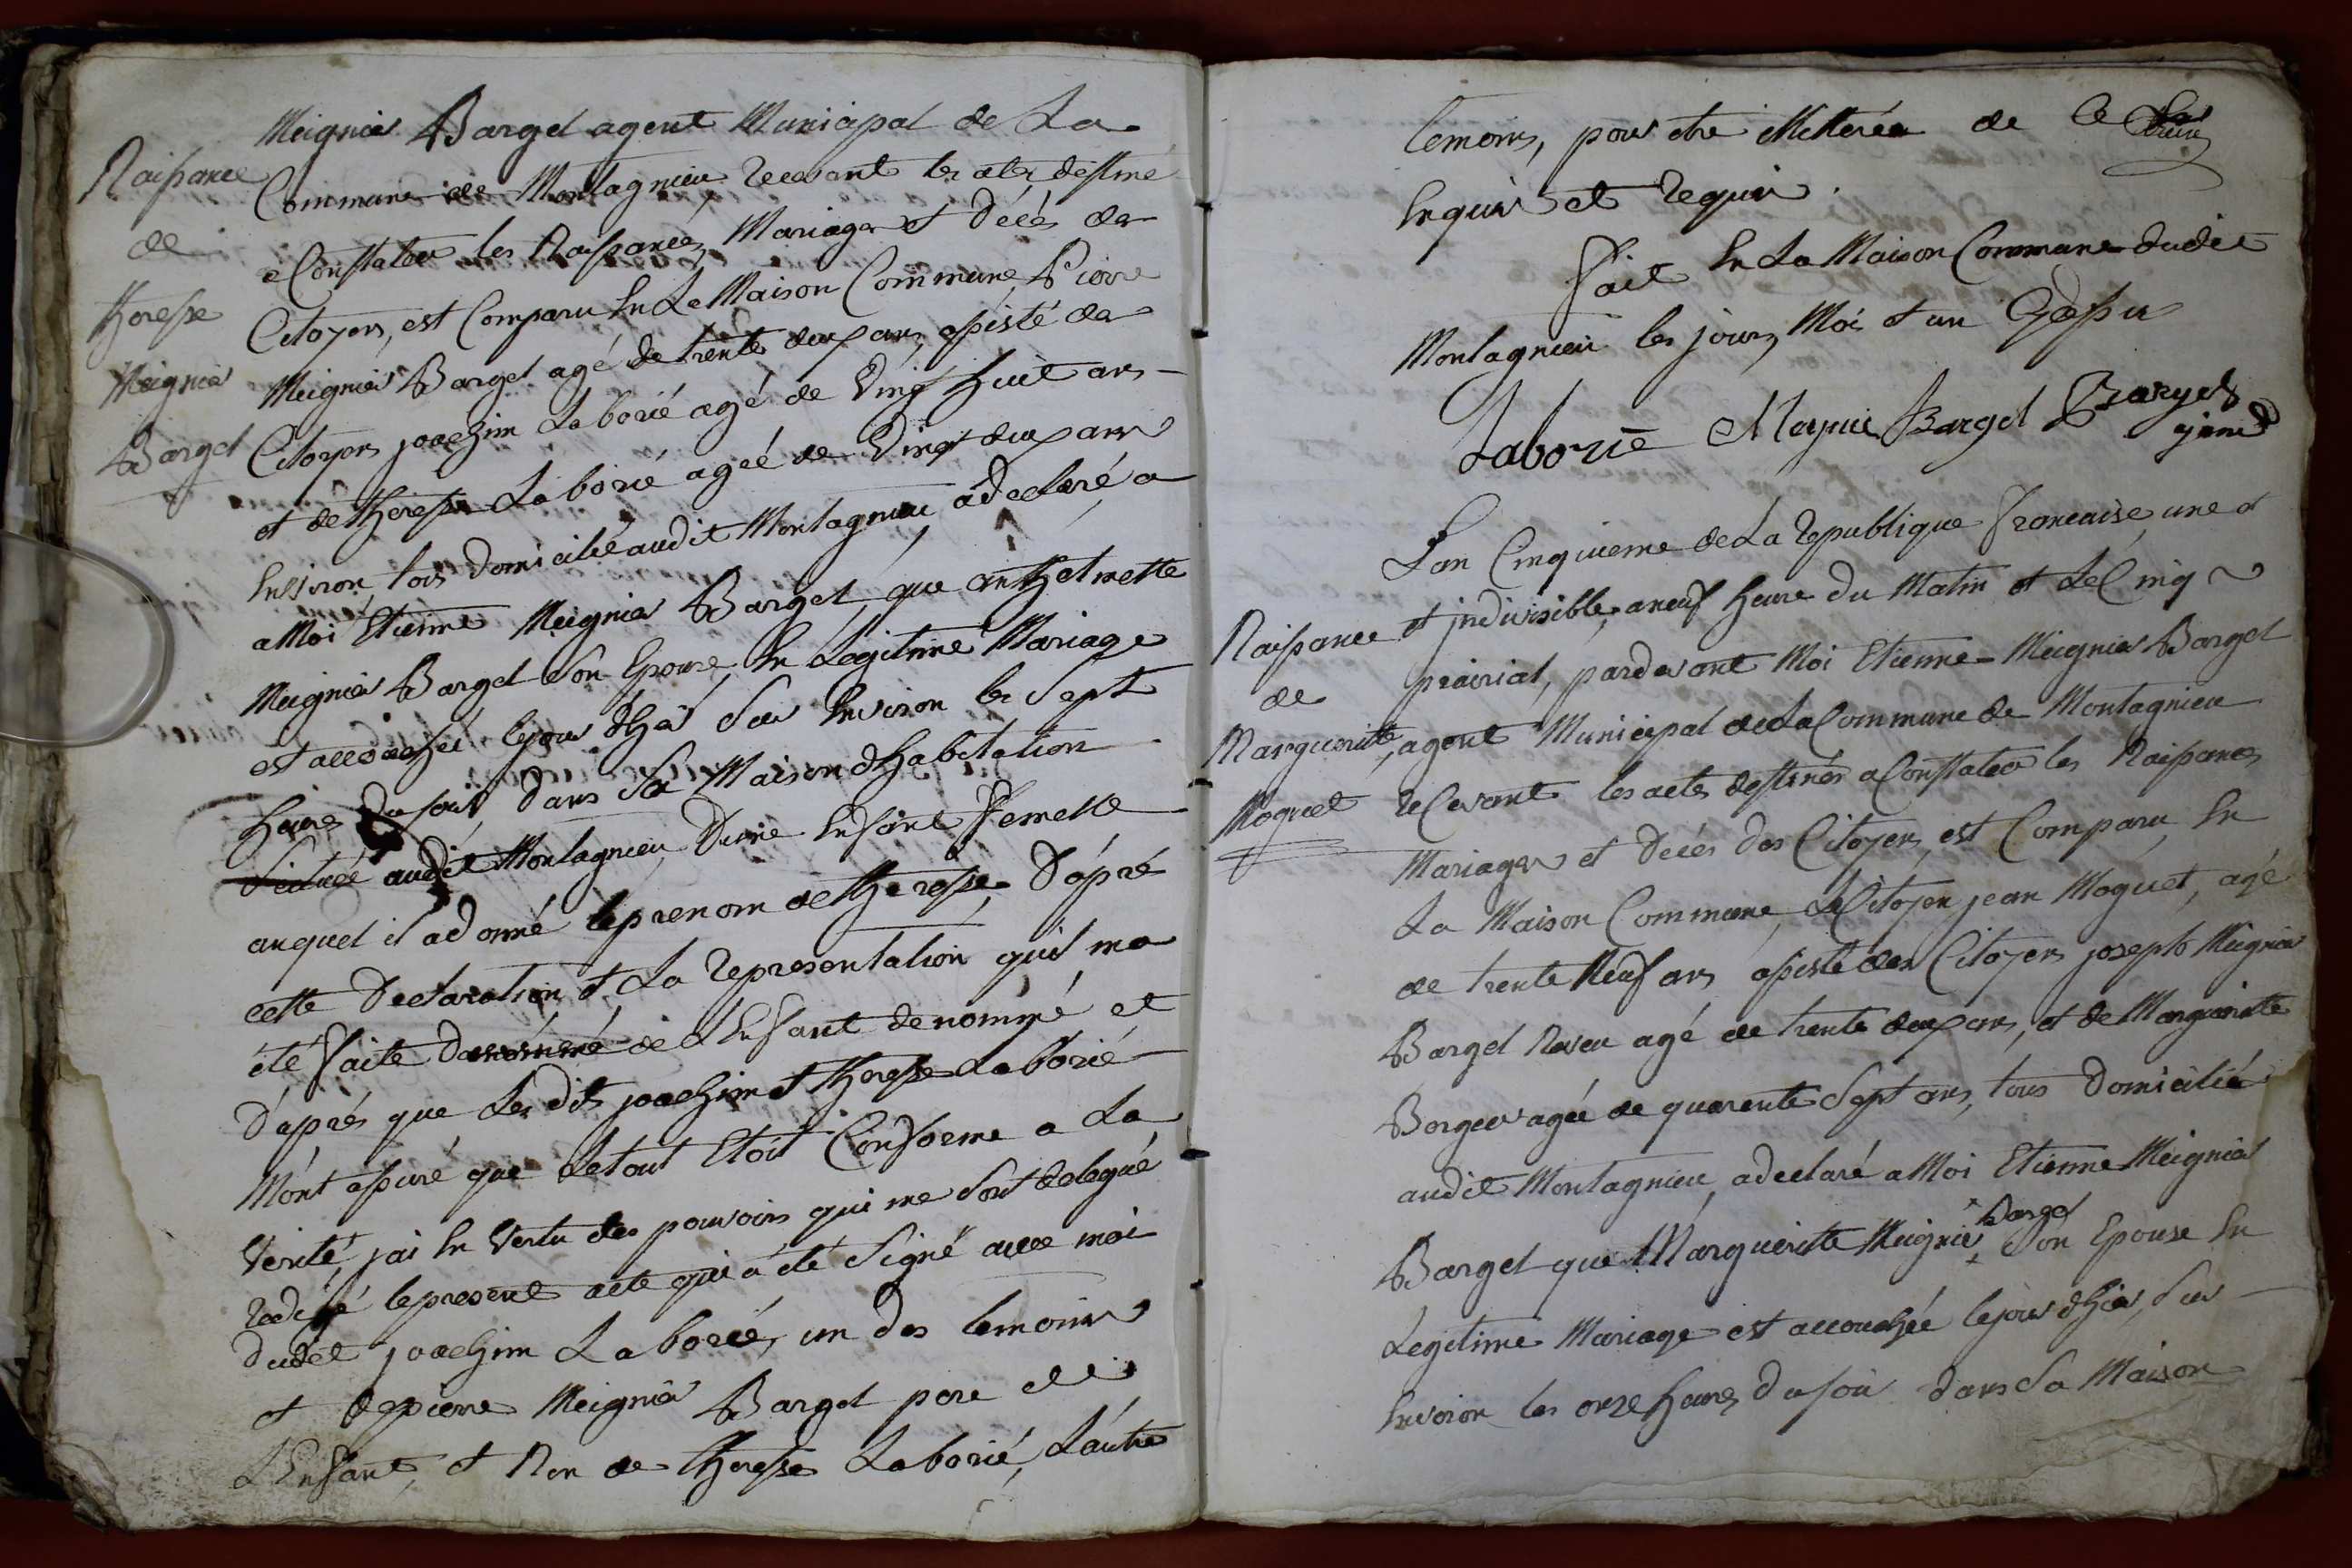 Naissance
de
theresse
Meignier
Bargel
Meignier Bargel agent Municipal de La
Commune de Montagnieu recevant les actes destiné
a Constater les Naissances, Mariages et Décès des
Citoyens, est Comparu En La Maison Commune, Pierre
Meignier Bargel agé de trente deux ans, assisté des
Citoyens joachim Laborié agé de Vingt huit ans
et de theresse Laborié ageé de Vingt deux ans
Environ, tous domicilié audit Montagnieu adeclaré a
a Moi Etienne Meignier Bargel, que anthelmette
Meignier Bargel Son Epouse En Légitime Mariage
est accouchée lejour dhier Sur Environ les Sept
heures du soir, dans Sa Maison dhabitation
Scituée audit Montagnieu, Dune Enfant femelle
auquel il adonné leprenom de theresse, D'apré
cette Declaration et La representation quil ma
été faite de L'Enfant denommé et
D'aprés que Les dits joachim et theresse Laborié
M'ont assuré que Letout Etoit Conforme a La
Verité, jai En Vertu des pouvoirs qui me Sont delegué
redigé lepresent acte qui a été Signé avec moi
dudit joachim Laborié, un des temoins
et de pierre Meignier Bargel pere de
L'Enfant, et Non de theresse Laborié, L'autre
temoins, pour être illitérée de Ce
Enquis et requis.
Fait En La Maison Commune dudit
Montagnieu les jours, Moi et an
Laborie Meynier Bargel Bargel
Naissance
de
Marguerite
Moguet
L'an Cinquieme de La republique francaise, une et
et jndivisible, aneuf heure du Matin et Le Cinq
prairial, pardevant Moi Etienne Meignier Bargel
agent Municipal de La Commune de Montagnieu
reCevant les actes destinés a Constater les Naissances
Mariages et Decés des Citoyens, est Comparu, En
La Maison Commune, Le Citoyen jean Moguet, agé
de trente Neuf ans assisté des Citoyens joseph Meignier
Bargel Neveu agé de trente deux ans, et de Marguerite
Berger agée de quarente Sept ans, tous Domicilié
audit Montagnieu, adeclaré a Moi Etienne Meignier
Bargel que Marguerite Meignier Bargel Son Epouse En
Legitime Mariage est accouchée lejour dhier, Sur
Environ les onze heures du soir dans Sa Maison